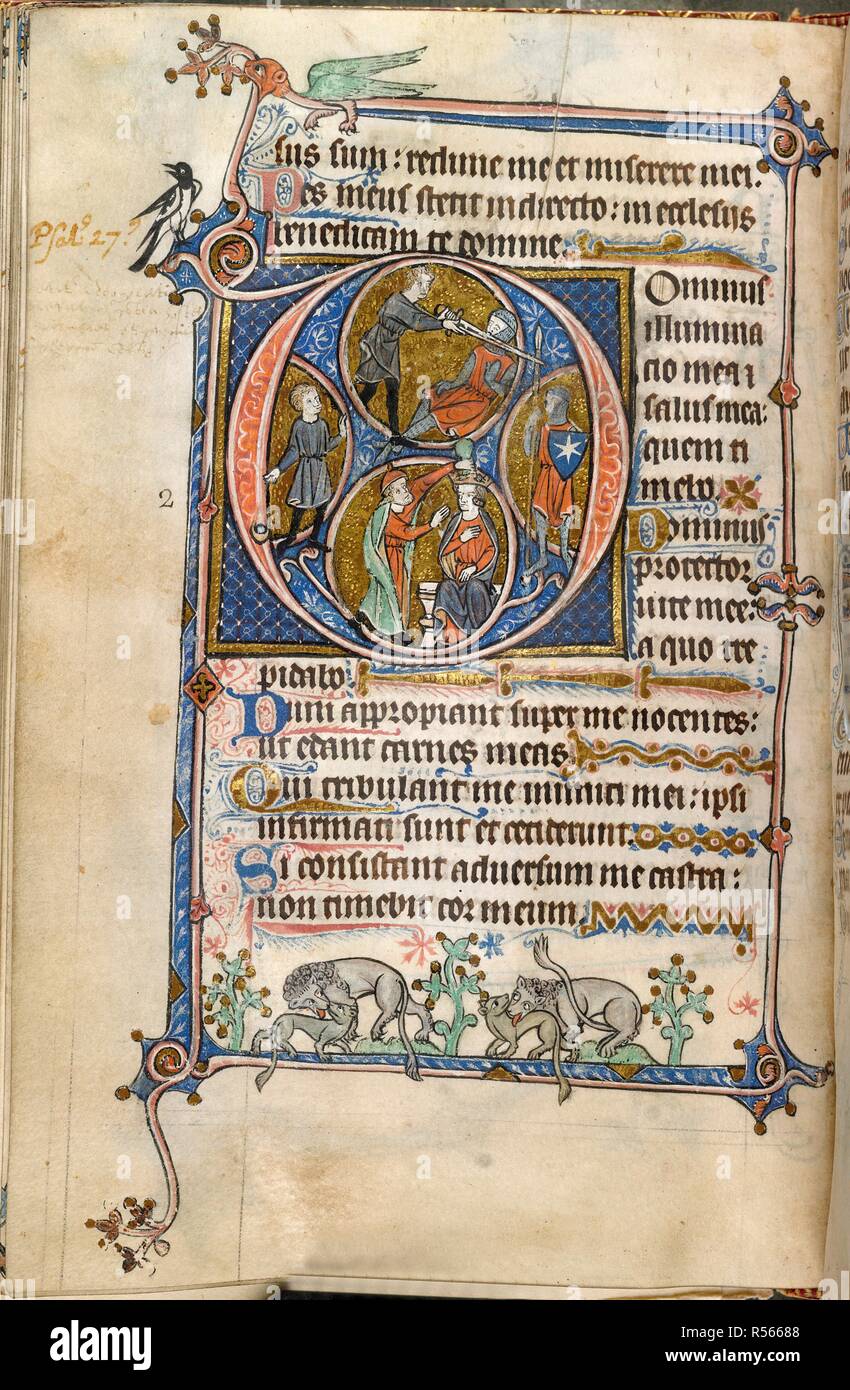 sus sum: redime me et miserere mei.
Pes meus stetit in directo: in ecclesiis
benedicam te domine.
Psal. 27.
Dominus
illumina
cio mea i
salus mea:
quem ti
mebo.
2
Dominus
protector
uite mee:
a quo tre
pidabo.
Dum appropiant super me nocentes:
ut edant carnes meas.
Qui tribulant me inimici mei: ipsi
infirmati sunt et ceciderunt.
Si consistant aduersum me castra:
non timebit cor meum.
alamy stock photo
R56688
www.alamy.com